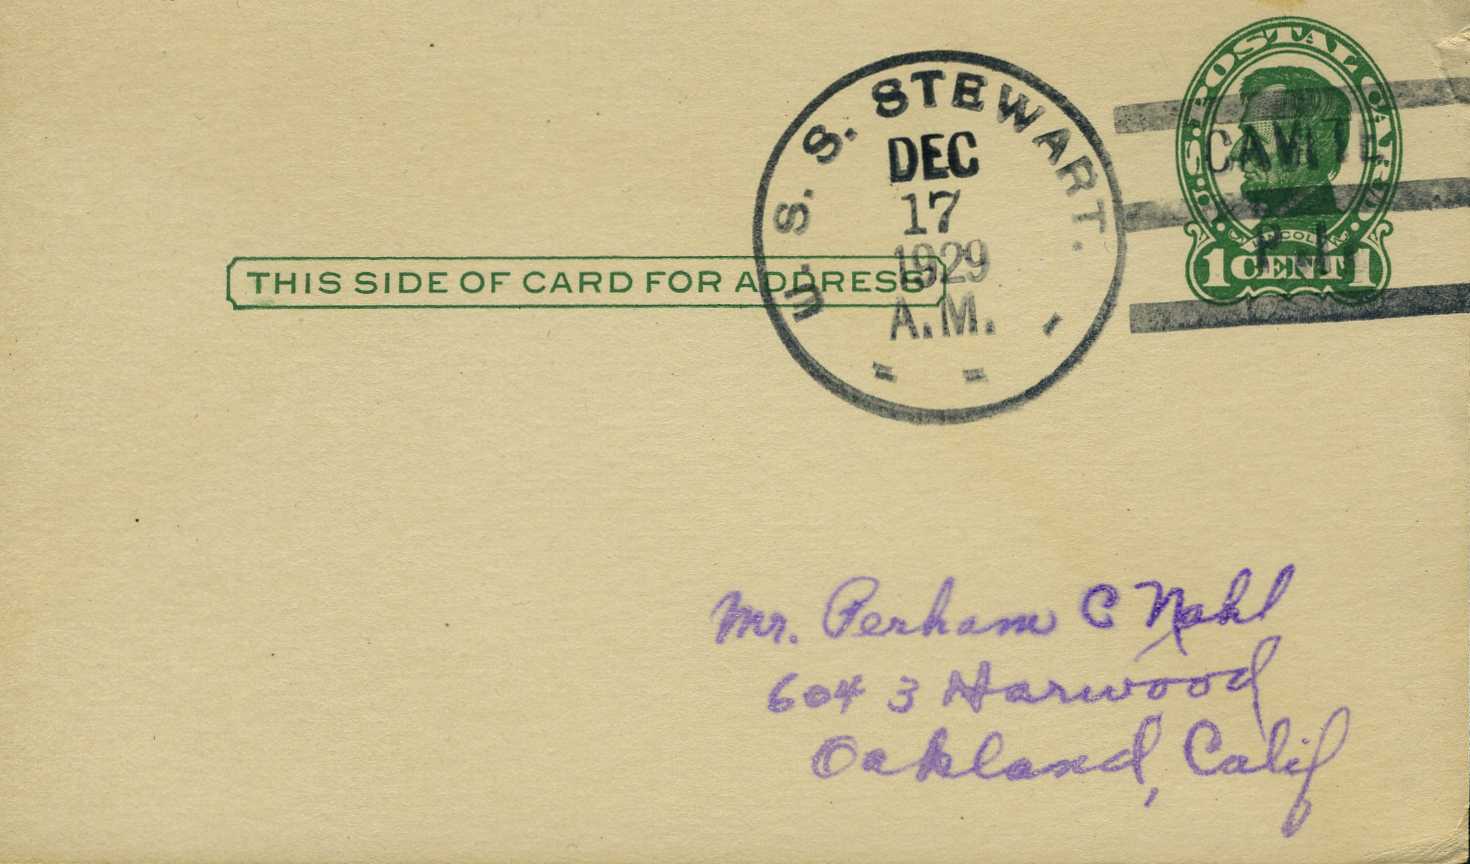 U.S. POSTAL CARD
U. S. S. STEWART.
DEC
17
1929
A.M.
CAVITE
P.I.
LINCOLN
1 CENT 1
THIS SIDE OF CARD FOR ADDRESS
Mr. Perham C Nahl
6043 Harwood
Oakland, Calif